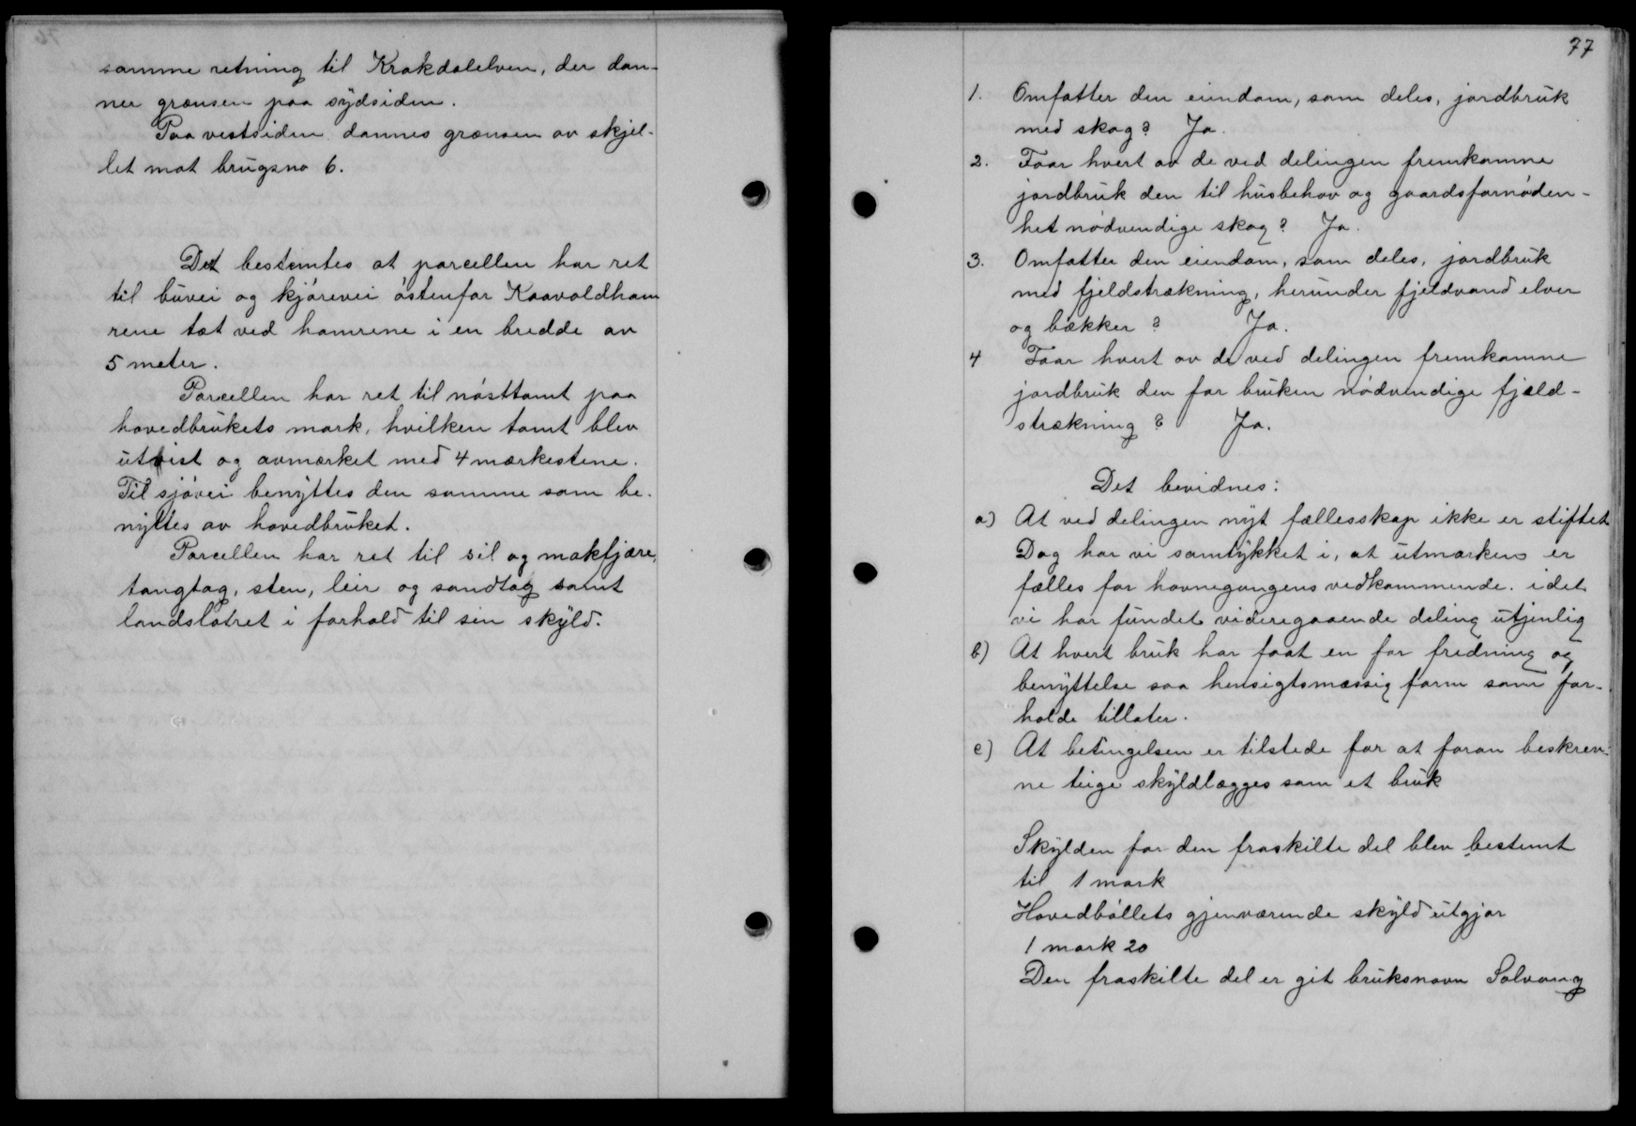 samme retning til Krokdalelven, der dan-
ner grænsen paa sydsiden.
Paa vestsiden dannes grænsen av skjel-
let mot brugsno 6.
Det bestemtes at parcellen har ret
til buvei og kjørevei østenfor Kaavoldham
rene tæt ved hamrene i en bredde av
5 meter.
Parcellen har ret til nøsttomt paa
hovedbrukets mark, hvilken tomt blev
utvist og avmerket med 4 merkestene.
Til sjøvei benyttes den samme som be-
nyttes av hovedbruket.
Parcellen har ret til sil og makfjære,
tangtag, sten, leir og sandtag samt
landslotret i forhold til sin skyld.
77
1. Omfatter den eiendom, som deles, jordbruk
med skog? Ja.
2. Faar hvert av de ved delingen fremkomne
jordbruk den til husbehov og gaardsfornøden-
het nødvendige skog? Ja.
3. Omfatter den eiendom, som deles, jordbruk
med fjeldstrækning, herunder fjeldvand elver
og bække? Ja.
4 Faar hvert av de ved delingen fremkomne
jordbruk den for bruken nødvendige fjeld-
strækning? Ja.
Det bevidnes:
a) At ved delingen nyt fællesskap ikke er stiftet
Dog har vi samtykket i, at utmarken er
fælles for havnegangens vedkommende. idet
vi har fundet videregaaende deling utjenlig
b) At hvert bruk har faat en for fredning og
benyttelse saa hensigtsmæssig form som for-
holde tillater.
c) At betingelsen er tilstede for at foran beskrev-
ne teige skyldlægges som et bruk
Skylden for den fraskilte del blev bestemt
til 1 mark
Hovedbøllets gjenværende skyld utgjør
1 mark 20
Den fraskilte del er git bruksnavn Solvang